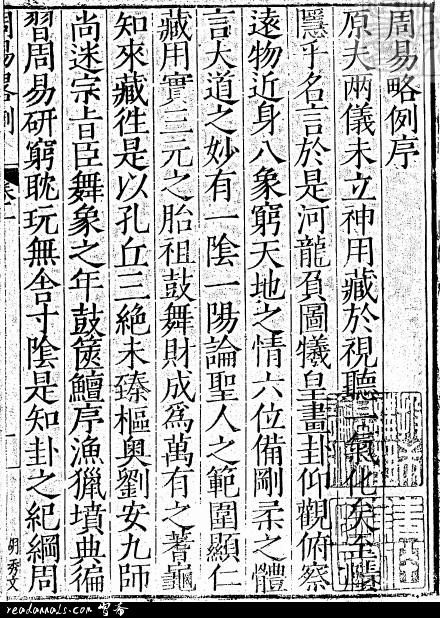 周易略例序
原夫兩儀未立神用藏於視聽一氣化矣至賾
隱乎名言於是河龍負圖犧皇畫卦仰觀俯察
遠物近身八象窮天地之情六位備剛柔之體
言大道之妙有一陰一陽論聖人之範圍顯仁
藏用實三元之胎祖鼓舞財成爲萬有之蓍龜
知來藏徃是以孔丘三絶未臻樞奧劉安九師
尚迷宗旨臣舞象之年鼓篋鱣序漁獵墳典徧
習周易研窮耽玩無舍寸陰是知卦之紀綱周
周易略例
一
明秀文
readannals.com